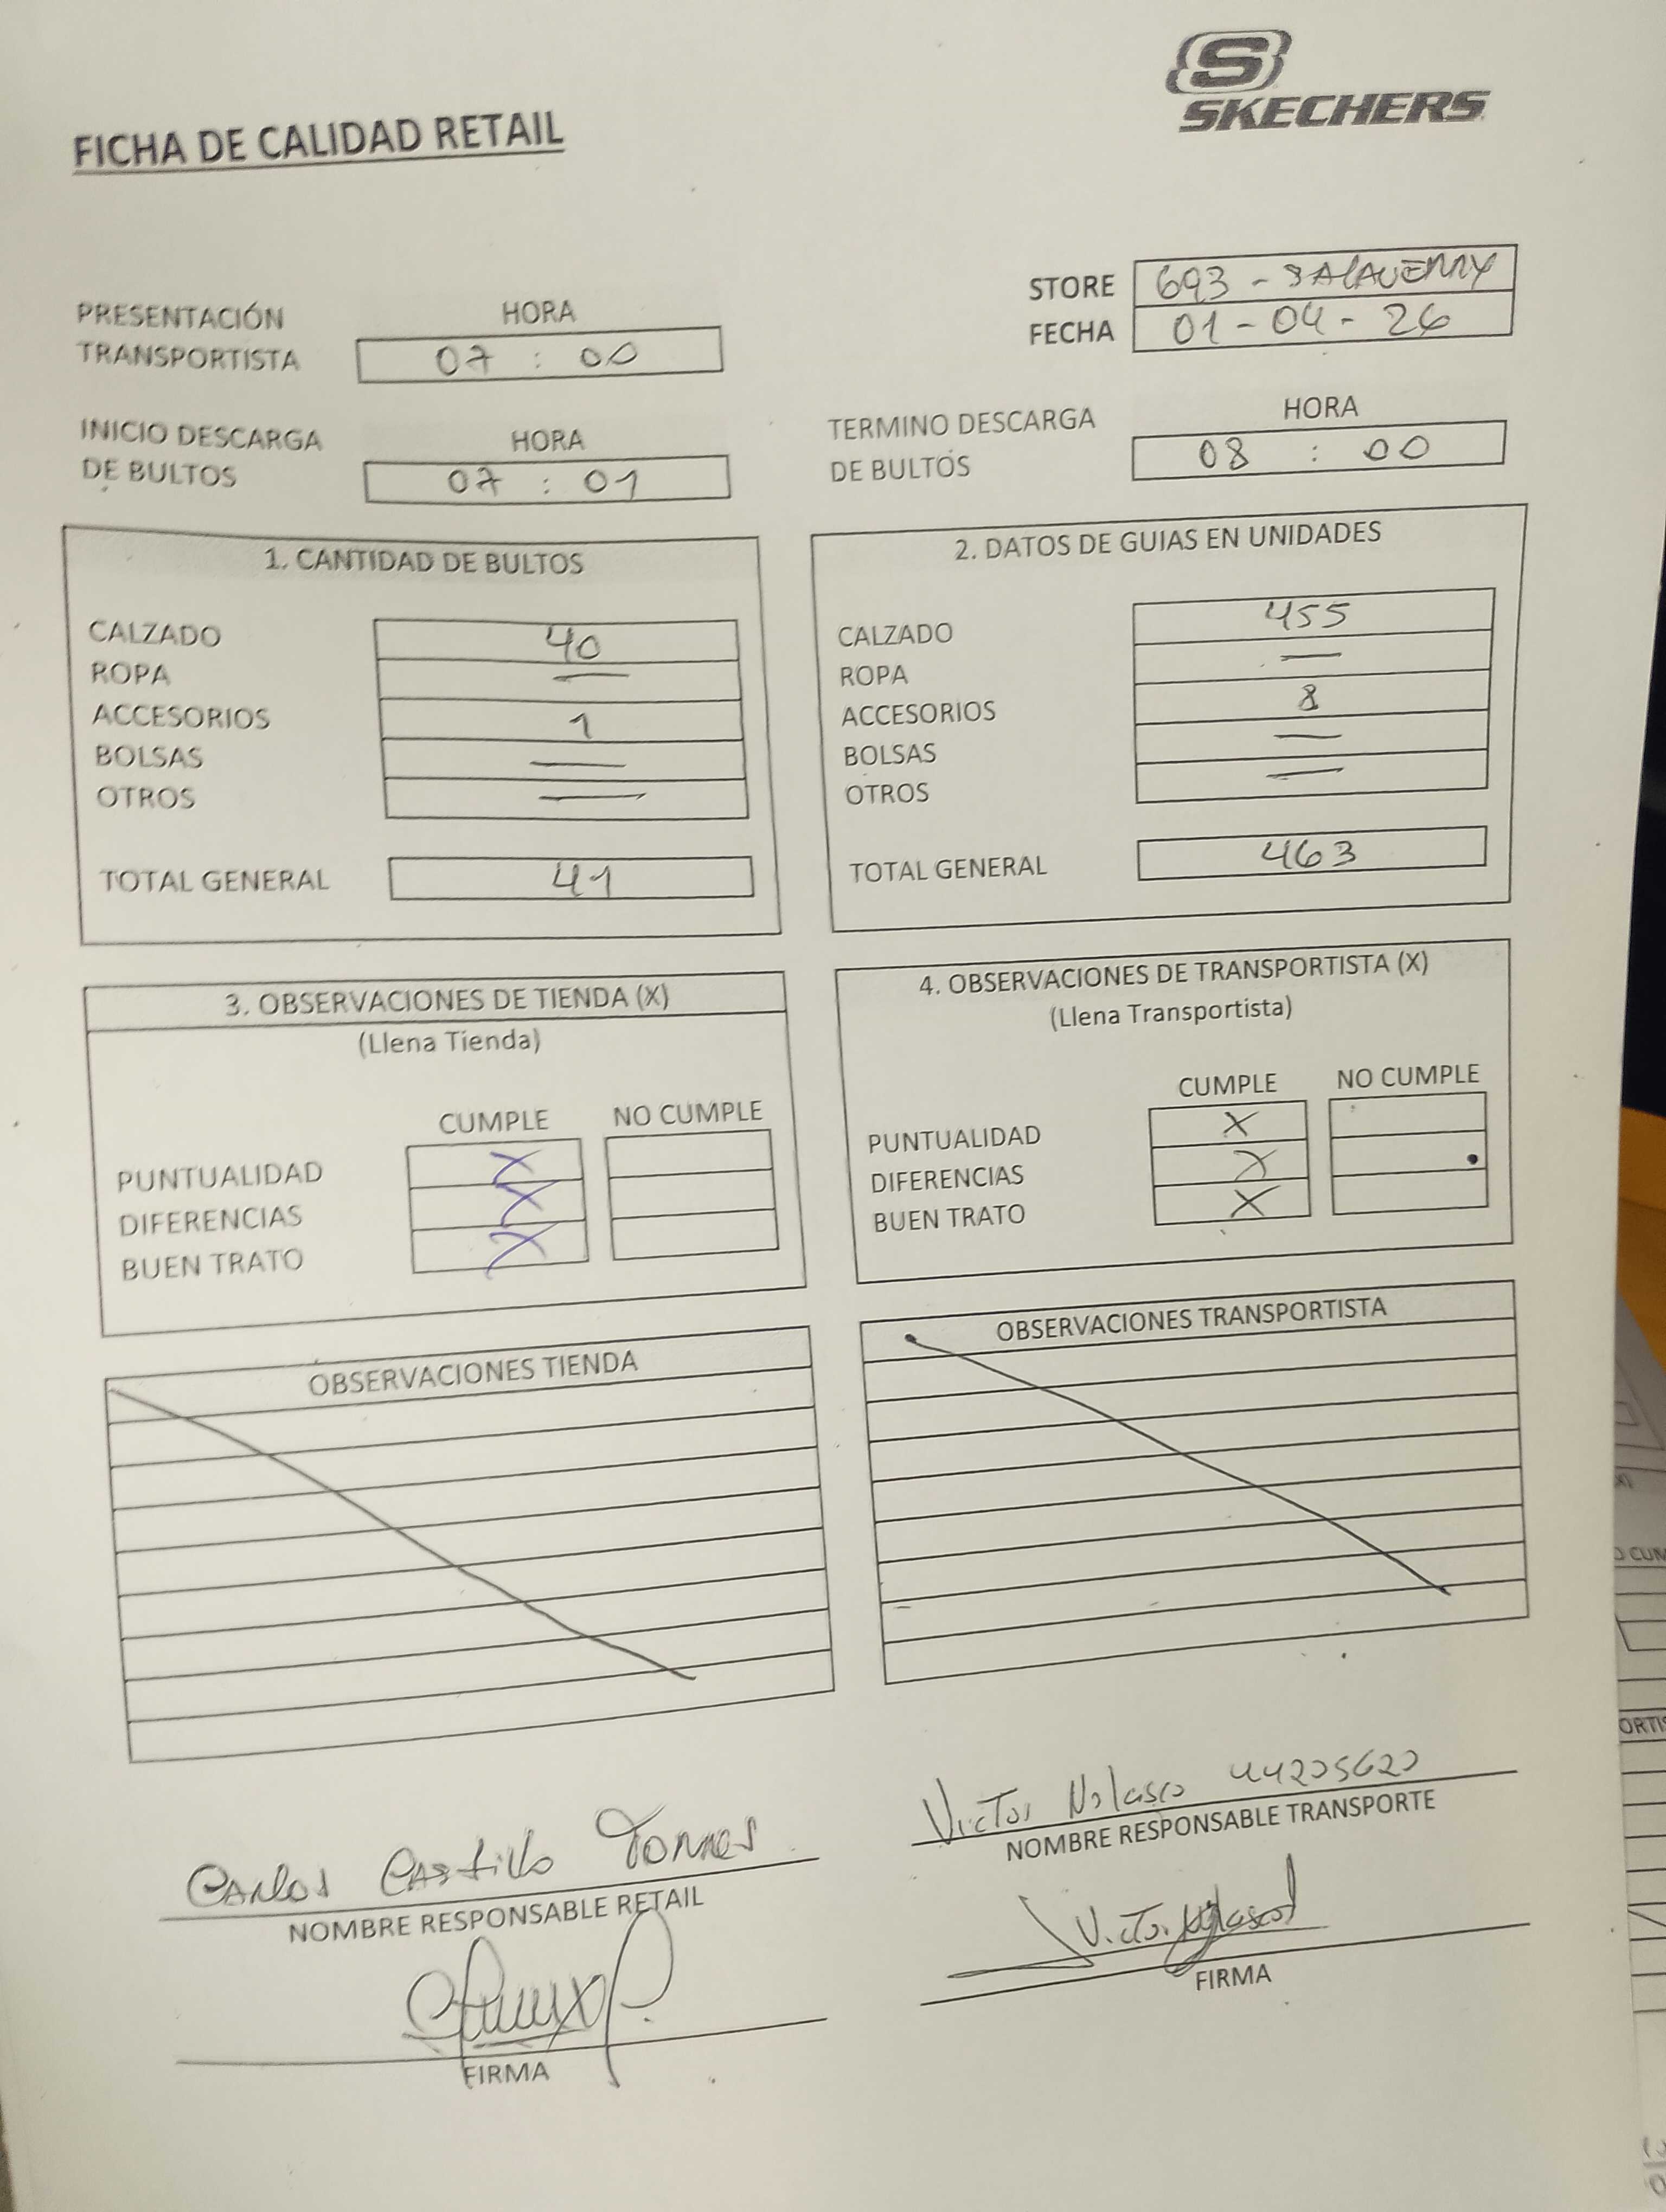 SKECHERS
FICHA DE CALIDAD RETAIL
STORE 693 - SALAVERRY
FECHA 01 - 04 - 26
PRESENTACIÓN TRANSPORTISTA HORA 07 : 00
INICIO DESCARGA DE BULTOS HORA 07 : 01
TERMINO DESCARGA DE BULTOS HORA 08 : 00
1. CANTIDAD DE BULTOS
CALZADO 40
ROPA —
ACCESORIOS 1
BOLSAS —
OTROS —
TOTAL GENERAL 41
2. DATOS DE GUIAS EN UNIDADES
CALZADO 455
ROPA —
ACCESORIOS 8
BOLSAS —
OTROS —
TOTAL GENERAL 463
3. OBSERVACIONES DE TIENDA (X)
(Llena Tienda)
CUMPLE NO CUMPLE
PUNTUALIDAD X
DIFERENCIAS X
BUEN TRATO X
4. OBSERVACIONES DE TRANSPORTISTA (X)
(Llena Transportista)
CUMPLE NO CUMPLE
PUNTUALIDAD X
DIFERENCIAS X
BUEN TRATO X
OBSERVACIONES TIENDA
OBSERVACIONES TRANSPORTISTA
Carlos Castillo Torres
NOMBRE RESPONSABLE RETAIL
FIRMA
Victor Nolasco
NOMBRE RESPONSABLE TRANSPORTE
Victor Nolasco
FIRMA